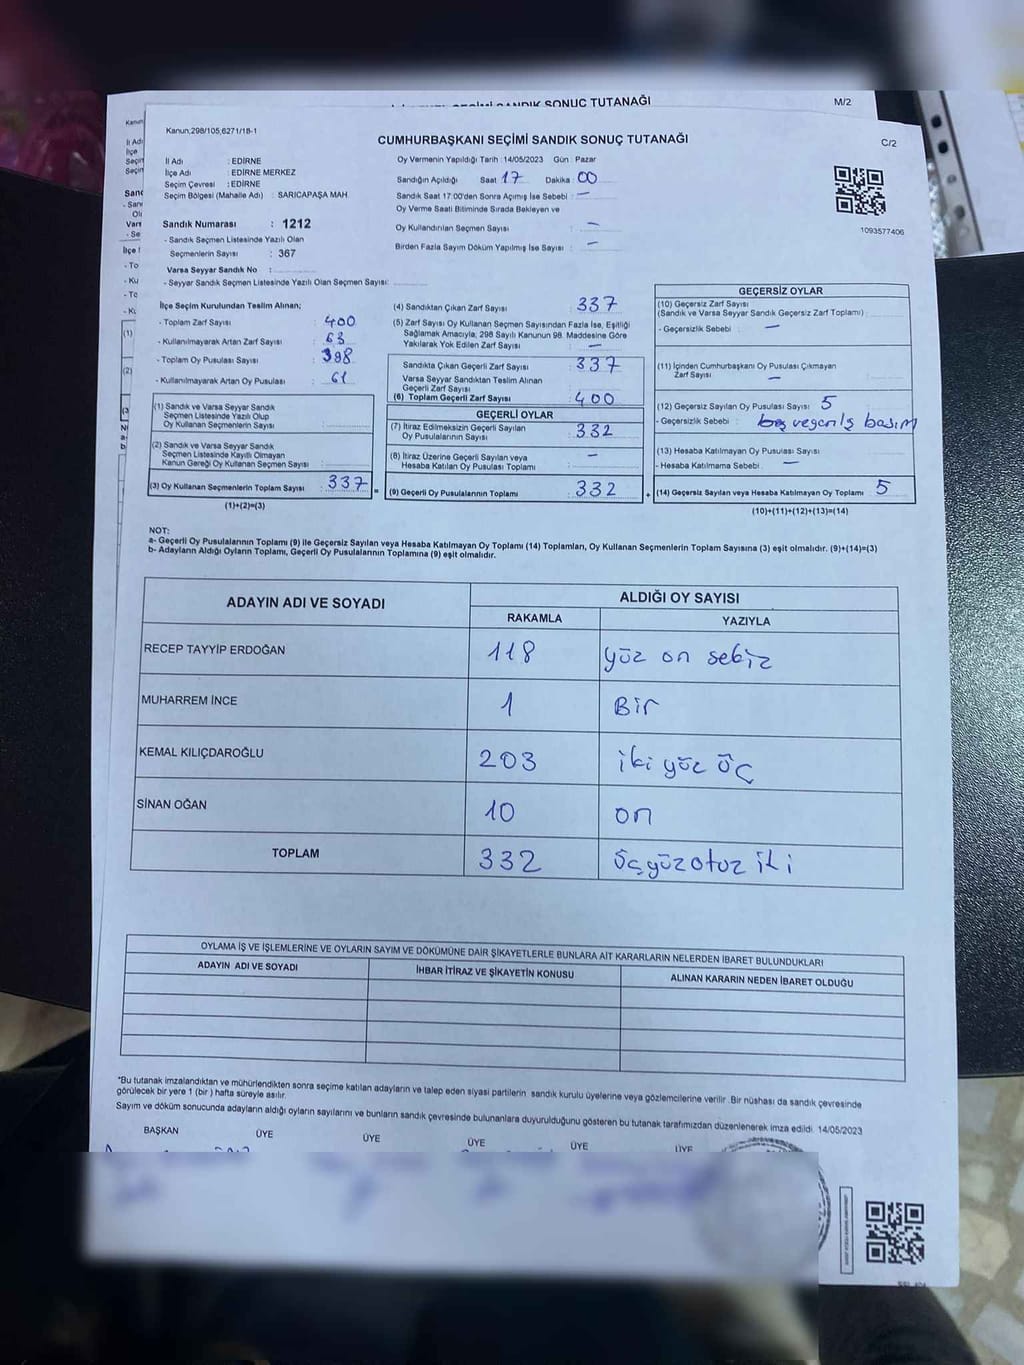 SEÇİMİ SANDIK SONUÇ TUTANAĞI
M/2
Kanun,298/105,6271/18-1
CUMHURBAŞKANI SEÇİMİ SANDIK SONUÇ TUTANAĞI
C/2
İl Adı : EDİRNE
İlçe Adı : EDİRNE MERKEZ
Seçim Çevresi : EDİRNE
Seçim Bölgesi (Mahalle Adı) : SARICAPAŞA MAH
Sandık Numarası : 1212
- Sandık Seçmen Listesinde Yazılı Olan
Seçmenlerin Sayısı : 367
Varsa Seyyar Sandık No :
- Seyyar Sandık Seçmen Listesinde Yazılı Olan Seçmen Sayısı:
Oy Vermenin Yapıldığı Tarih : 14/05/2023 Gün : Pazar
Sandığın Açıldığı Saat 17 Dakika : 00
Sandık Saat 17:00'den Sonra Açımış İse Sebebi : —
Oy Verme Saati Bitiminde Sırada Bekleyen ve
Oy Kullandırılan Seçmen Sayısı : —
Birden Fazla Sayım Döküm Yapılmış İse Sayısı : —
1093577406
İlçe Seçim Kurulundan Teslim Alınan;
- Toplam Zarf Sayısı : 400
- Kullanılmayarak Artan Zarf Sayısı : 63
- Toplam Oy Pusulası Sayısı : 398
- Kullanılmayarak Artan Oy Pusulası : 61
(1) Sandık ve Varsa Seyyar Sandık
Seçmen Listesinde Yazılı Olup
Oy Kullanan Seçmenlerin Sayısı :
(2) Sandık ve Varsa Seyyar Sandık
Seçmen Listesinde Kayıtlı Olmayan
Kanun Gereği Oy Kullanan Seçmen Sayısı :
(3) Oy Kullanan Seçmenlerin Toplam Sayısı : 337 =
(1)+(2)=(3)
(4) Sandıktan Çıkan Zarf Sayısı : 337
(5) Zarf Sayısı Oy Kullanan Seçmen Sayısından Fazla İse, Eşitliği
Sağlamak Amacıyla, 298 Sayılı Kanunun 98. Maddesine Göre
Yakılarak Yok Edilen Zarf Sayısı : —
Sandıkta Çıkan Geçerli Zarf Sayısı : 337
Varsa Seyyar Sandıktan Teslim Alınan
Geçerli Zarf Sayısı :
(6) Toplam Geçerli Zarf Sayısı : 400
GEÇERLİ OYLAR
(7) İtiraz Edilmeksizin Geçerli Sayılan
Oy Pusulalarının Sayısı : 332
(8) İtiraz Üzerine Geçerli Sayılan veya
Hesaba Katılan Oy Pusulası Toplamı : —
(9) Geçerli Oy Pusulalarının Toplamı : 332 +
GEÇERSİZ OYLAR
(10) Geçersiz Zarf Sayısı
(Sandık ve Varsa Seyyar Sandık Geçersiz Zarf Toplamı) :
- Geçersizlik Sebebi : —
(11) İçinden Cumhurbaşkanı Oy Pusulası Çıkmayan
Zarf Sayısı : —
(12) Geçersiz Sayılan Oy Pusulası Sayısı : 5
- Geçersizlik Sebebi : basım
(13) Hesaba Katılmayan Oy Pusulası Sayısı :
- Hesaba Katılmama Sebebi : —
(14) Geçersiz Sayılan veya Hesaba Katılmayan Oy Toplamı 5
(10)+(11)+(12)+(13)=(14)
NOT:
a- Geçerli Oy Pusulalarının Toplamı (9) ile Geçersiz Sayılan veya Hesaba Katılmayan Oy Toplamı (14) Toplamları, Oy Kullanan Seçmenlerin Toplam Sayısına (3) eşit olmalıdır. (9)+(14)=(3)
b- Adayların Aldığı Oyların Toplamı, Geçerli Oy Pusulalarının Toplamına (9) eşit olmalıdır.
ADAYIN ADI VE SOYADI
ALDIĞI OY SAYISI
RAKAMLA YAZIYLA
RECEP TAYYİP ERDOĞAN 118 yüz on sekiz
MUHARREM İNCE 1 Bir
KEMAL KILIÇDAROĞLU 203 iki yüz üç
SİNAN OĞAN 10 on
TOPLAM 332 üçyüzotuz iki
OYLAMA İŞ VE İŞLEMLERİNE VE OYLARIN SAYIM VE DÖKÜMÜNE DAİR ŞİKAYETLERLE BUNLARA AİT KARARLARIN NELERDEN İBARET BULUNDUKLARI
ADAYIN ADI VE SOYADI İHBAR İTİRAZ VE ŞİKAYETİN KONUSU ALINAN KARARIN NEDEN İBARET OLDUĞU
*Bu tutanak imzalandıktan ve mühürlendikten sonra seçime katılan adayların ve talep eden siyasi partilerin sandık kurulu üyelerine veya gözlemcilerine verilir. Bir nüshası da sandık çevresinde
görülecek bir yere 1 (bir) hafta süreyle asılır.
Sayım ve döküm sonucunda adayların aldığı oyların sayılarını ve bunların sandık çevresinde bulunanlara duyurulduğunu gösteren bu tutanak tarafımızdan düzenlenerek imza edildi. 14/05/2023
BAŞKAN ÜYE ÜYE ÜYE ÜYE ÜYE